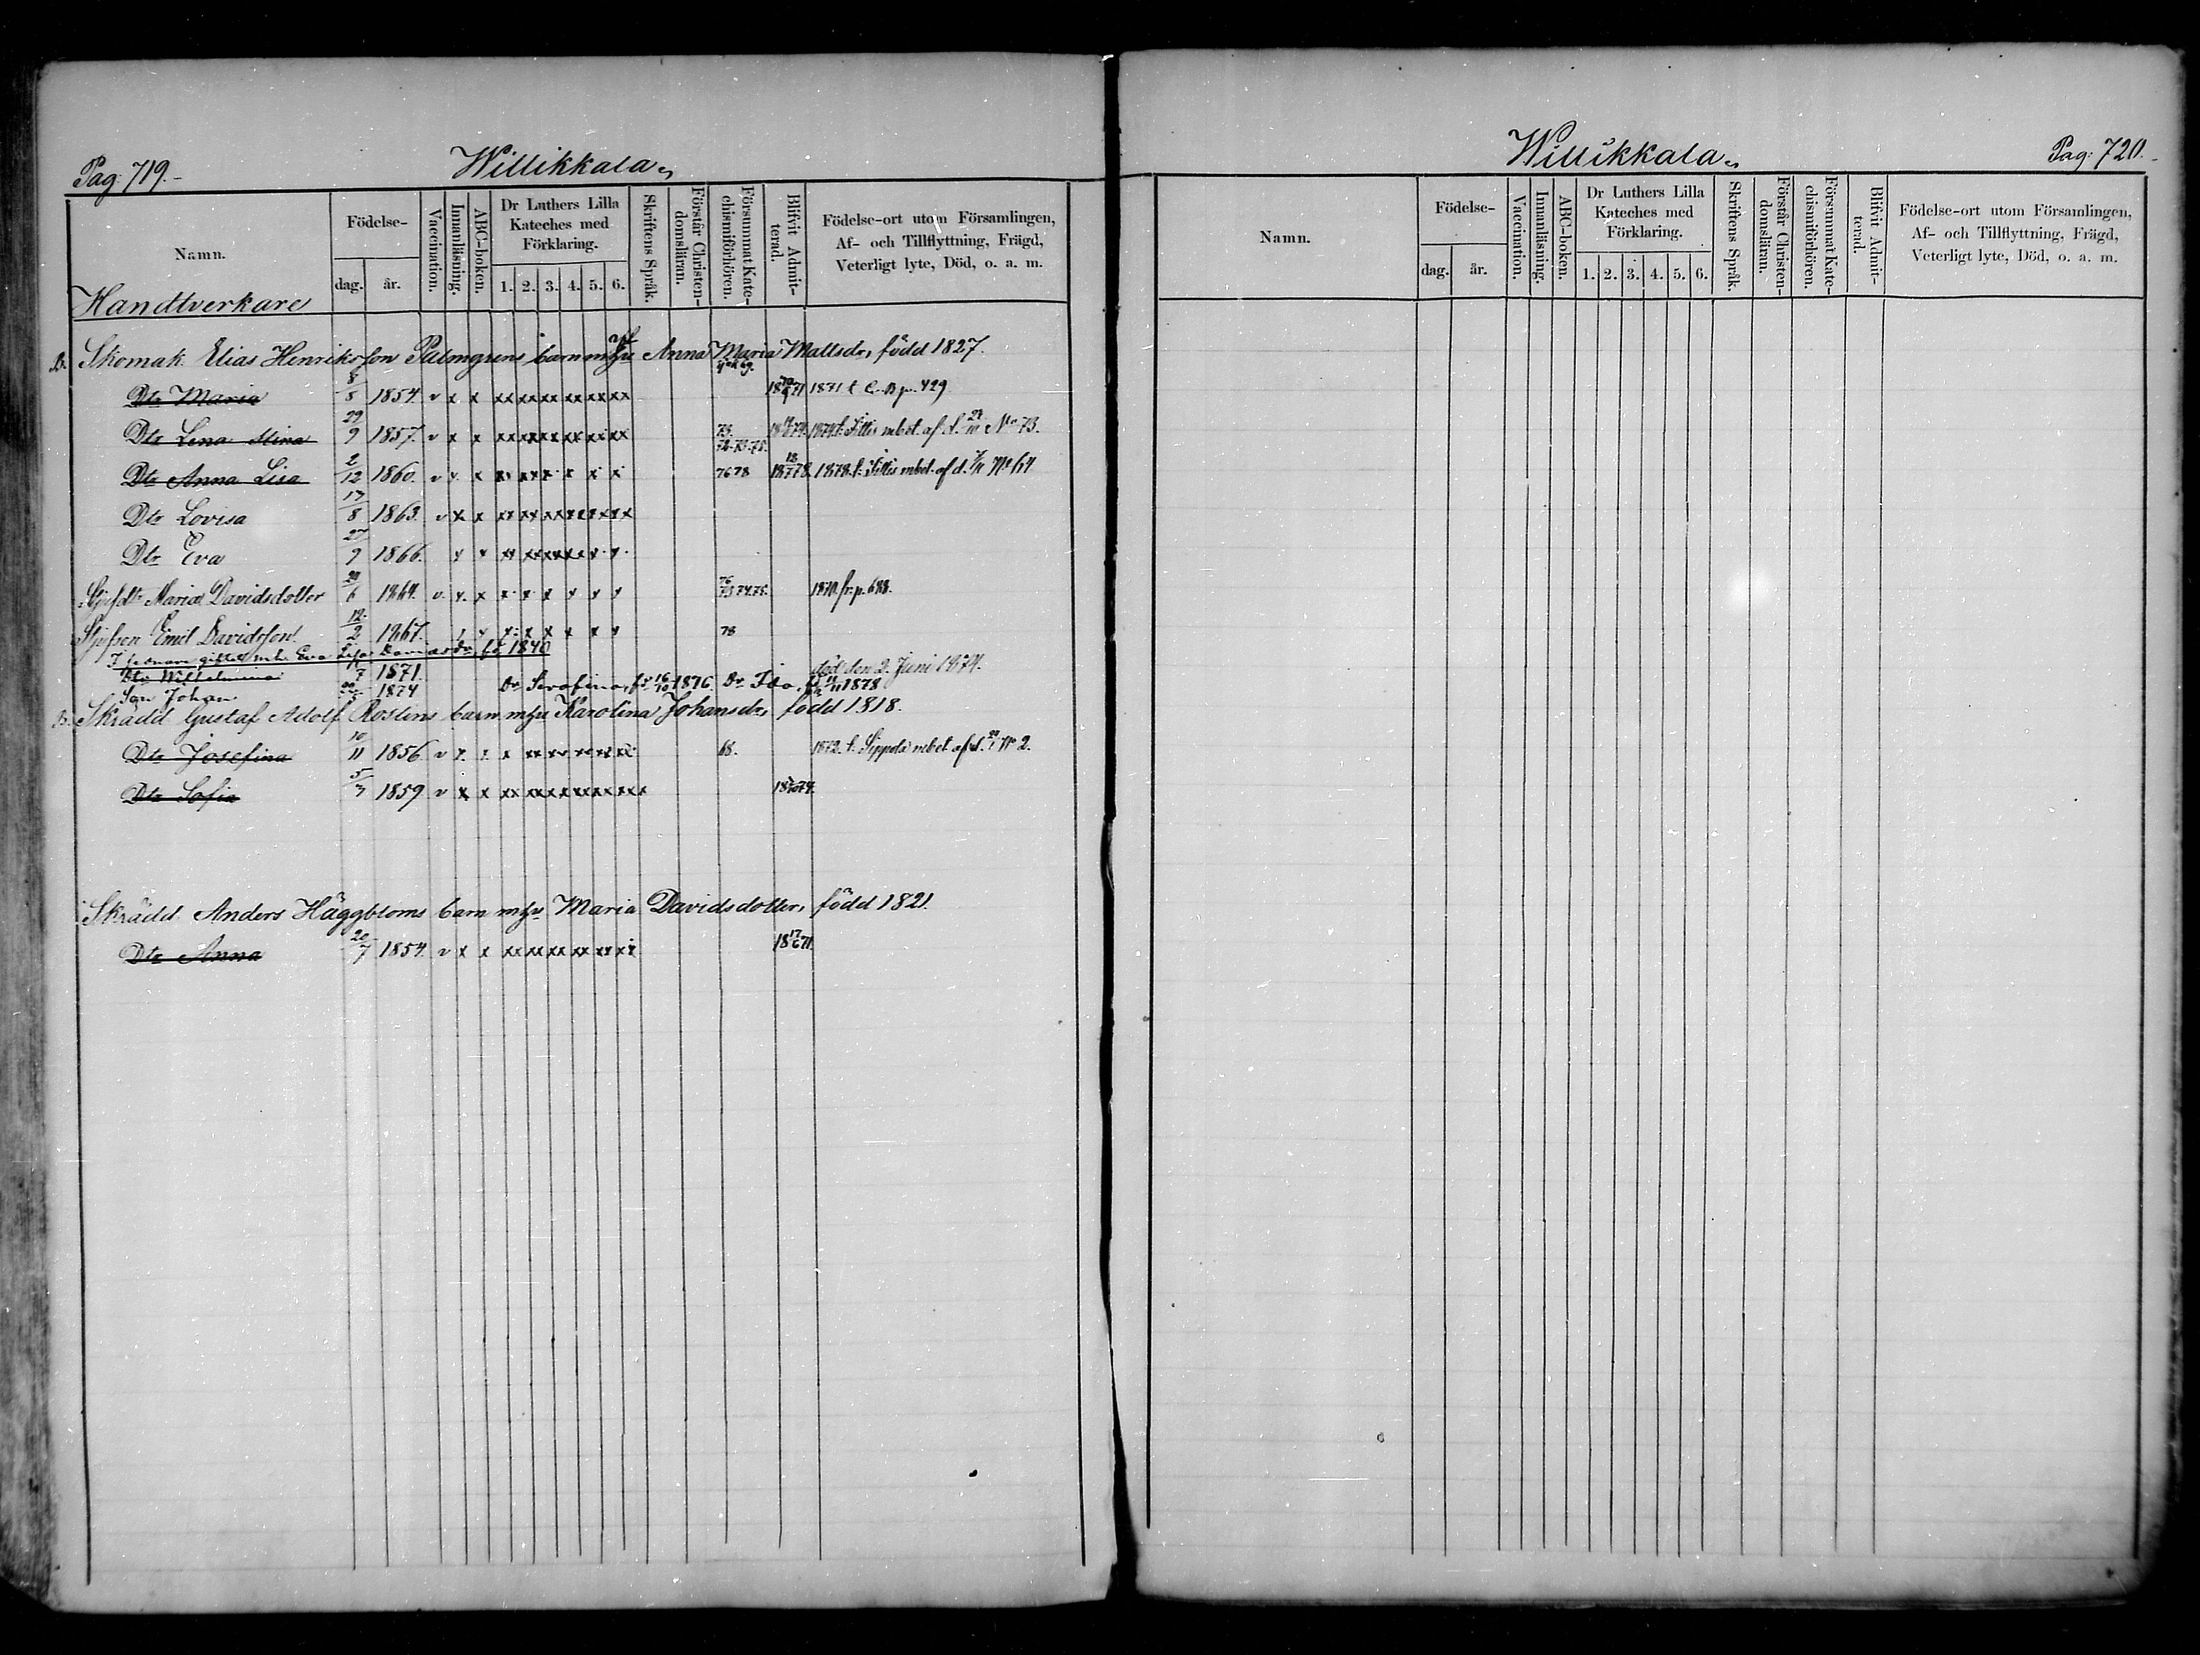 Pag: 719.
Willikkala
Namn.
Födelse-
dag.
år.
Vaccination.
Innanläsning.
ABC-boken.
Dr Luthers Lilla Kateches med Förklaring.
1. 2. 3. 4. 5. 6.
Skriftens Språk.
Förstår Christendomsläran.
Försummat Katechismiförhören.
Blifvit Admitterad.
Födelse-ort utom Församlingen,
Af- och Tillflyttning, Frägd,
Veterligt lyte, Död, o. a. m.
Handtverkare
Skomak. Elias Henriksson Palmgrens barn mhu Anna Maria Mattsdr, född 1827.
Dtr Maria 8/8 1854. v x x xx xx xx xx xx xx 1871 t. C. B p. 429
Dtr Lena Stina 29/9 1857. v x x xx xx xx xx xx xx 73. 1874 t. Sittis mbet. af d. No 73.
Dtr Anna Lisa 2/12 1860. v x x 76 78 1878 t. Sittis mbet. af d. No 64
Dtr Lovisa 17/8 1863. v x x
Dtr Eva 27/9 1866. x x
Styfdtr Maria Davidsdotter 6 1864. v. x. x x x x x x x 76 73 74 75. 1870 fr. p. 688.
Styfson Emil Davidsson 12/2 1867. 78
Eva Lisa 1840
Dtr Wilhelmina 7 1871. död den 2. Juni 1874.
Son Johan 1874 Dr Serafina, f. 16/10 1876. Dr Ida, f. 1878
Skrädd Gustaf Adolf Rostens barn mhu Karolina Johansdr, född 1818.
Dtr Josefina 10/11 1856. v x. x. x xx xx xx xx xx 68. 1872 t. Sippola mbet af d. No 2.
Dtr Sofia 5/3 1859 v x x
Skrädd. Anders Häggbloms barn mhu Maria Davidsdotter, född 1821.
Dtr Anna 20/7 1854. v x x xx xx xx xx xx xx 18 17/6 71
Willikkala
Pag: 720.
Namn.
Födelse-
dag.
år.
Vaccination.
Innanläsning.
ABC-boken.
Dr Luthers Lilla Kateches med Förklaring.
1. 2. 3. 4. 5. 6.
Skriftens Språk.
Förstår Christendomsläran.
Försummat Katechismiförhören.
Blifvit Admitterad.
Födelse-ort utom Församlingen,
Af- och Tillflyttning, Frägd,
Veterligt lyte, Död, o. a. m.